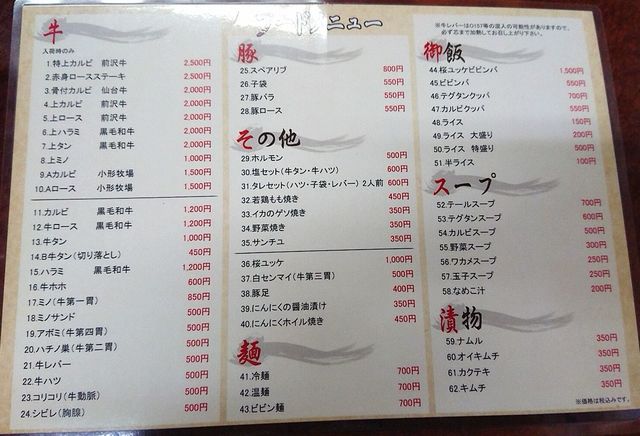 メニュー
牛
入荷時のみ
1.特上カルビ 前沢牛 2,500円
2.赤身ロースステーキ 2,500円
3.骨付カルビ 仙台牛 2,000円
4.上カルビ 前沢牛 2,000円
5.上ロース 前沢牛 2,000円
6.上ハラミ 黒毛和牛 2,000円
7.上タン 黒毛和牛 2,000円
8.上ミノ 1,000円
9.Aカルビ 小形牧場 1,500円
10.Aロース 小形牧場 1,500円
11.カルビ 黒毛和牛 1,200円
12.牛ロース 黒毛和牛 1,200円
13.牛タン 1,000円
14.B牛タン(切り落とし) 450円
15.ハラミ 黒毛和牛 1,200円
16.牛ホホ 600円
17.ミノ(牛第一胃) 850円
18.ミノサンド 500円
19.アボミ(牛第四胃) 500円
20.ハチノ巣(牛第二胃) 500円
21.牛レバー 500円
22.牛ハツ 500円
23.コリコリ(牛動脈) 500円
24.シビレ(胸腺) 500円
豚
25.スペアリブ 800円
26.子袋 550円
27.豚バラ 550円
28.豚ロース 550円
その他
29.ホルモン 500円
30.塩セット(牛タン・牛ハツ) 600円
31.タレセット(ハツ・子袋・レバー) 2人前 600円
32.若鶏もも焼き 450円
33.イカのゲソ焼き 350円
34.野菜焼き 350円
35.サンチユ 350円
36.桜ユッケ 1,000円
37.白センマイ(牛第三胃) 500円
38.豚足 400円
39.にんにくの醤油漬け 350円
40.にんにくホイル焼き 450円
麺
41.冷麺 700円
42.温麺 700円
43.ビビン麺 700円
※牛レバーはO157等の混入の可能性がありますので、
必ず芯まで加熱してお召し上がり下さい。
御飯
44.桜ユッケビビンバ 1,500円
45.ビビンバ 550円
46.テグタンクッパ 700円
47.カルビクッパ 550円
48.ライス 150円
49.ライス 大盛り 200円
50.ライス 特盛り 500円
51.半ライス 100円
スープ
52.テールスープ 700円
53.テグタンスープ 600円
54.カルビスープ 500円
55.野菜スープ 300円
56.ワカメスープ 250円
57.玉子スープ 250円
58.なめこ汁 200円
漬物
59.ナムル 350円
60.オイキムチ 350円
61.カクテキ 350円
62.キムチ 350円
※価格は税込みです。